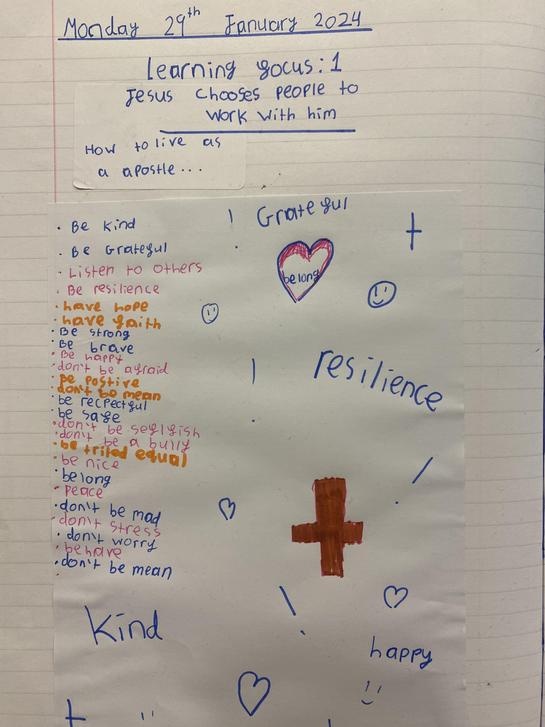 Monday 29th January 2024
Learning focus: 1
Jesus chooses people to
work with him
How to live as
a apostle...
· Be kind
· Be Grateful
· Listen to others
· Be resilience
· have hope
· have faith
· Be strong
· Be brave
· Be happy
· don't be afraid
· be postive
· don't be mean
· be recpectful
· be safe
· don't be selfish
· don't be a bully
· be trited equal
· be nice
· belong
· Peace
· don't be mad
· don't stress
· don't worry
· behave
· don't be mean
! Grateful
belong
resilience
Kind
happy